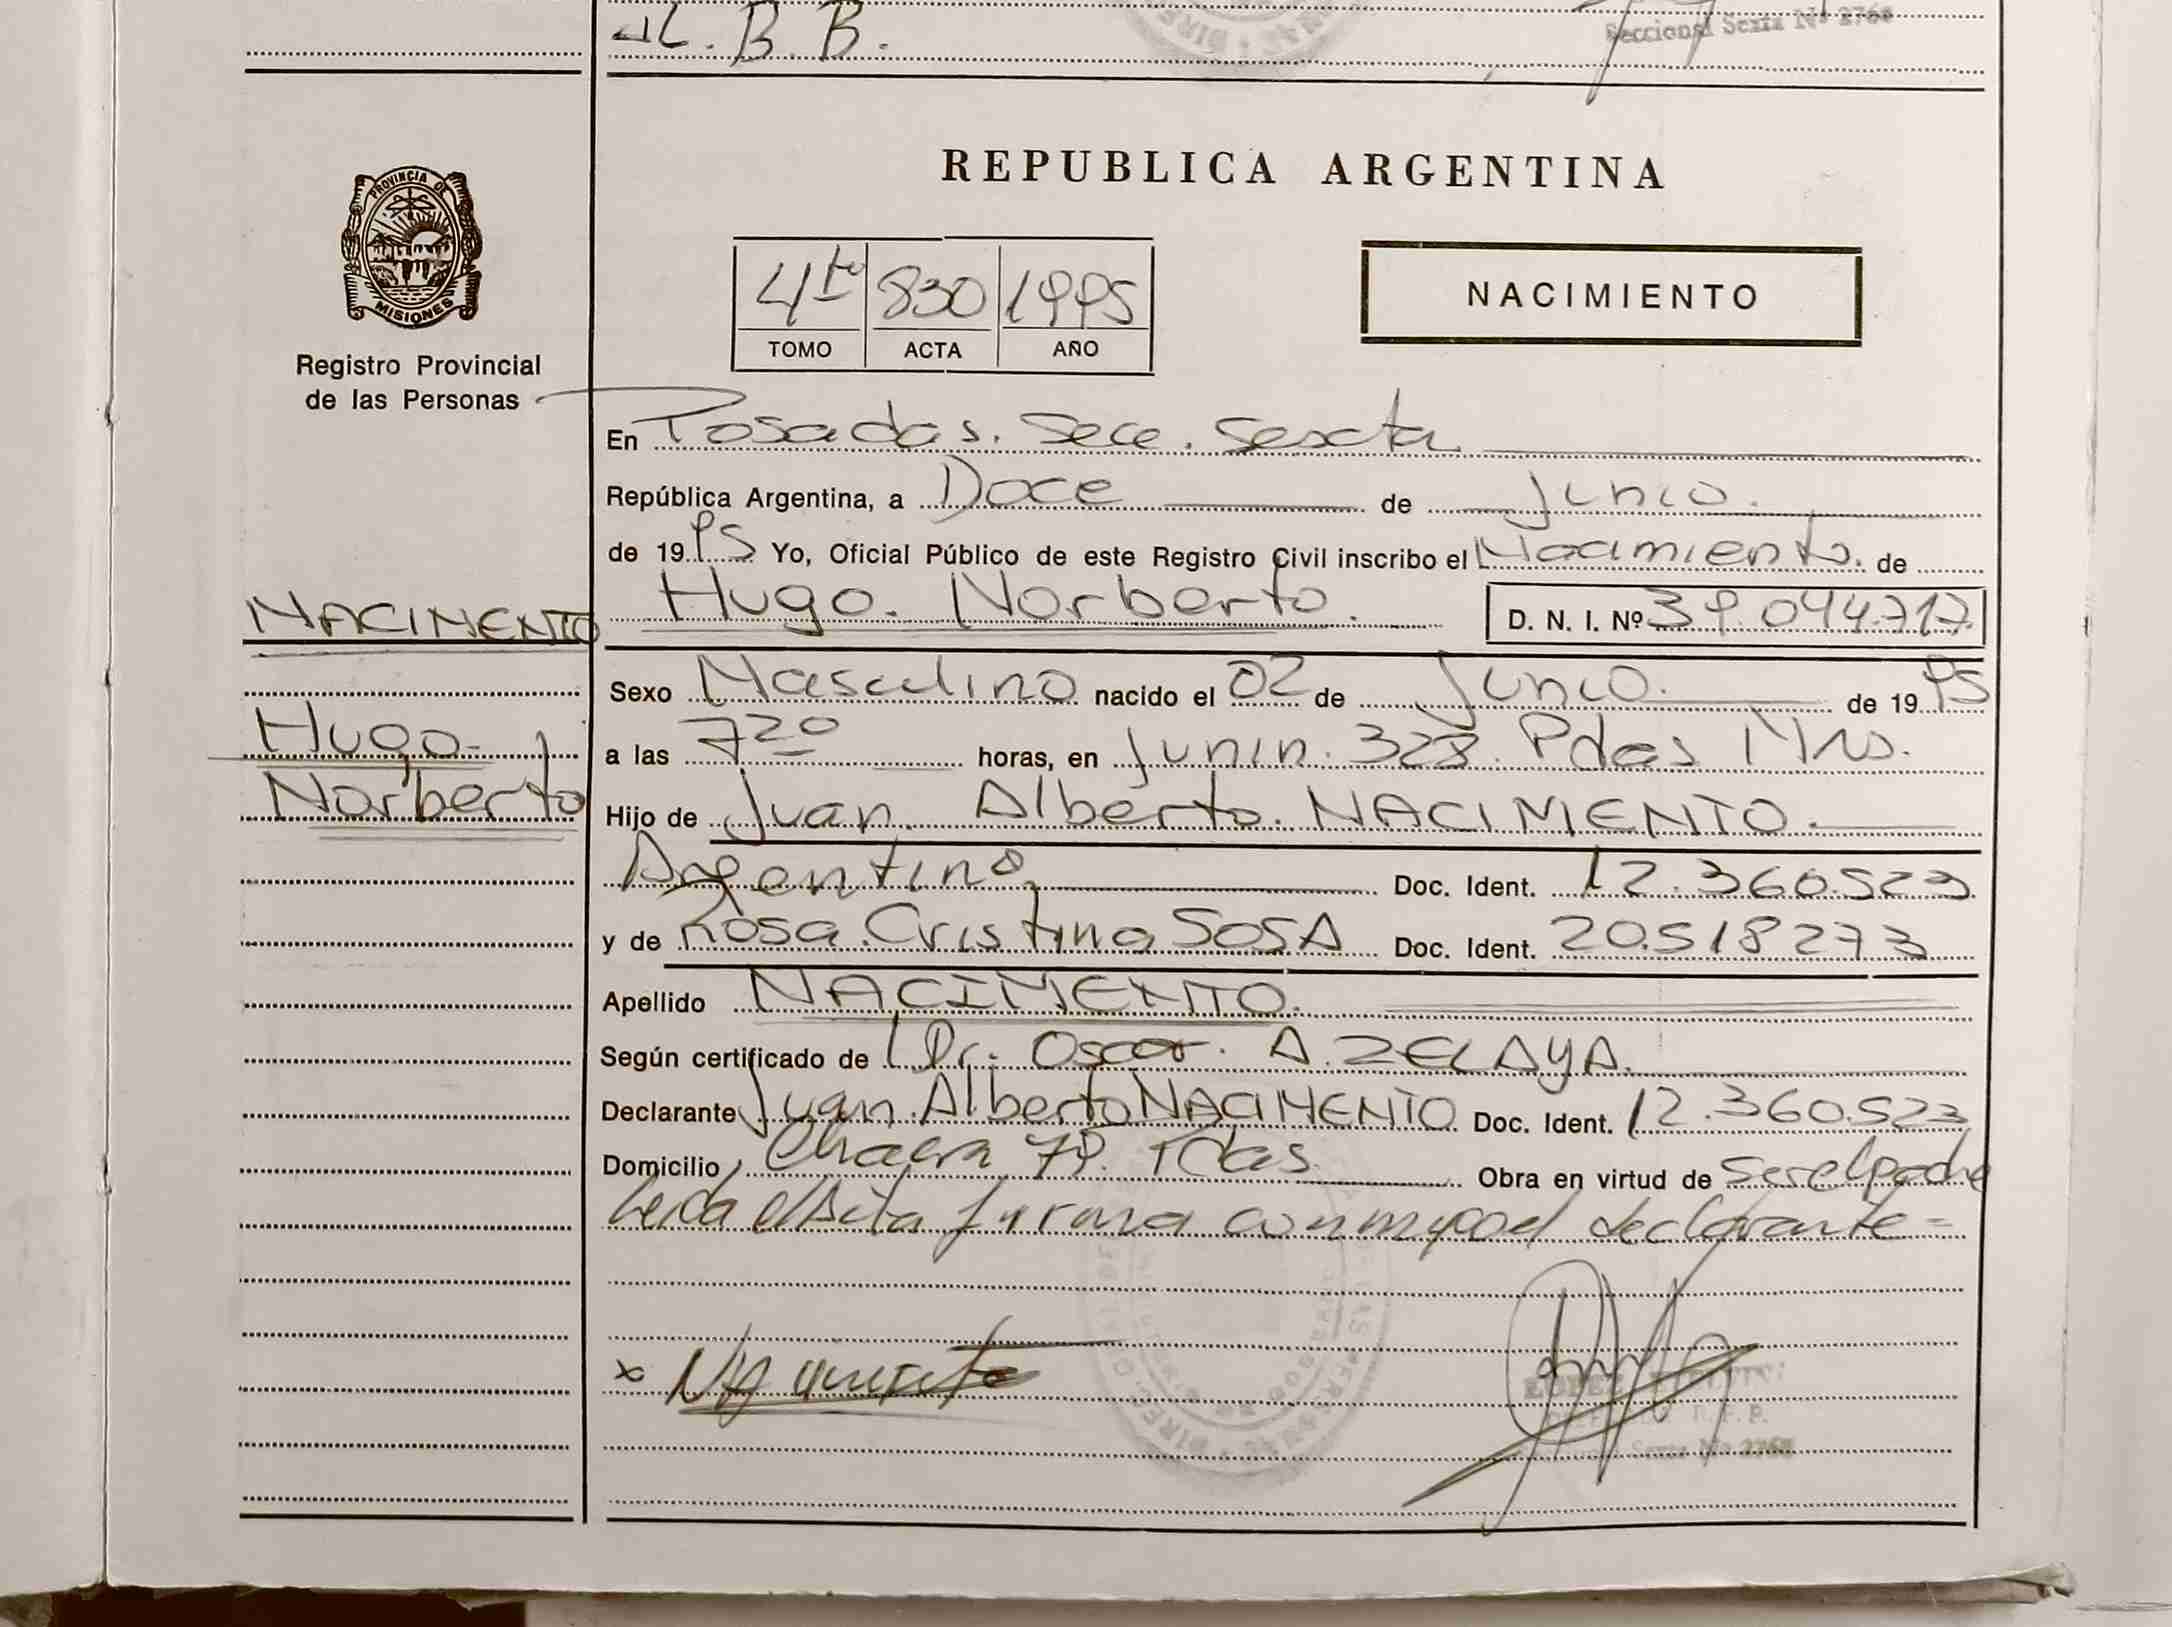 B. B.
Seccional Sexta Nº 2768
PROVINCIA DE
MISIONES
Registro Provincial
de las Personas
REPUBLICA ARGENTINA
4to 830 1995
TOMO ACTA AÑO
NACIMIENTO
En Posadas. Secc. Sexta
República Argentina, a Doce de Junio.
de 1995 Yo, Oficial Público de este Registro Civil inscribo el Nacimiento. de
NACIMENTO
Hugo. Norberto. D. N. I. Nº 39.044.717.
Sexo Masculino nacido el 02 de Junio. de 1995
Hugo
Norberto
a las 7 20 horas, en Junin. 328. Pdas Mns.
Hijo de Juan Alberto. NACIMENTO.
Argentino Doc. Ident. 12.360.523
y de Rosa. Cristina SOSA Doc. Ident. 20.518273
Apellido NACIMENTO.
Según certificado de Dr. Oscar. A. ZELAYA.
Declarante Juan. Alberto NACIMENTO Doc. Ident. 12.360.523
Domicilio Chacra 79. Pdas. Obra en virtud de ser el padre
Leida el Acta firma conmigo el declarante =
x
Seccional Sexta No 2768